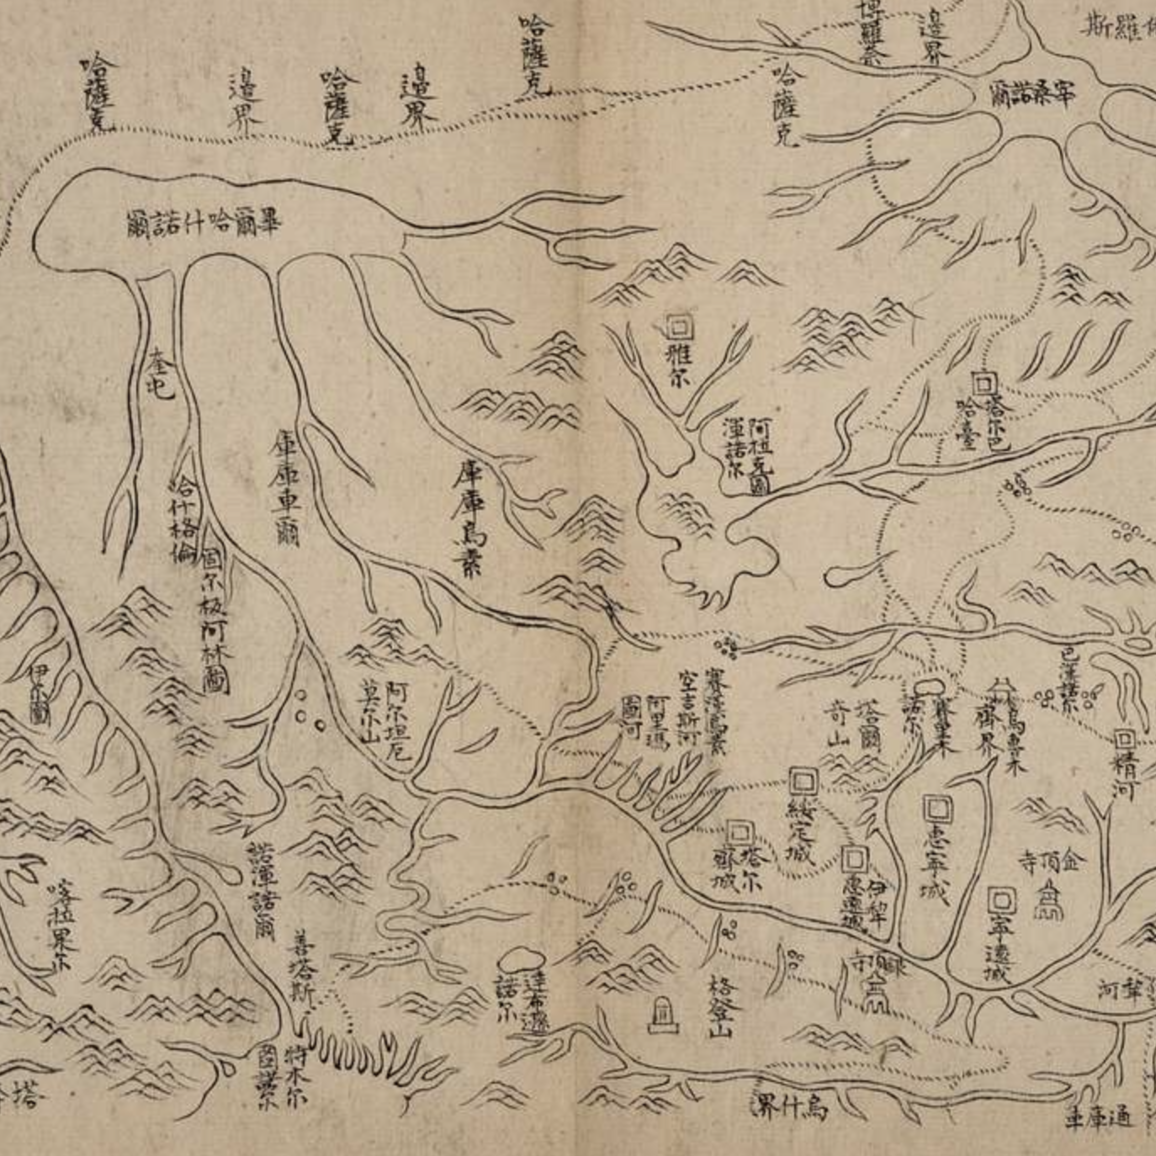 哈薩克
邊界
哈薩克
邊界
哈薩克
哈薩克
博羅奈
邊界
斯羅
宰桑諾爾
畢爾哈什諾爾
奎屯
哈什格倫
固尔板阿林圖
庫庫車爾
庫庫烏素
雅尔
阿拉克圖
渾諾尔
塔尔巴
哈臺
伊尔圖
阿尔坦厄
莫尔山
阿里瑪
圖河
賽澤烏蘇
空吉斯河
塔爾
奇山
賽里木
諾尔
烏魯木
齊界
巴漢諾尔
精河
綏定城
塔尔
齊城
惠寧城
伊犂
惠遠城
寧遠城
金頂寺
銀頂寺
諾渾諾爾
喀拉果尔
善塔斯
達布遜
諾尔
格登山
特木尔
圖諾尔
烏什界
通庫車
犂河
塔